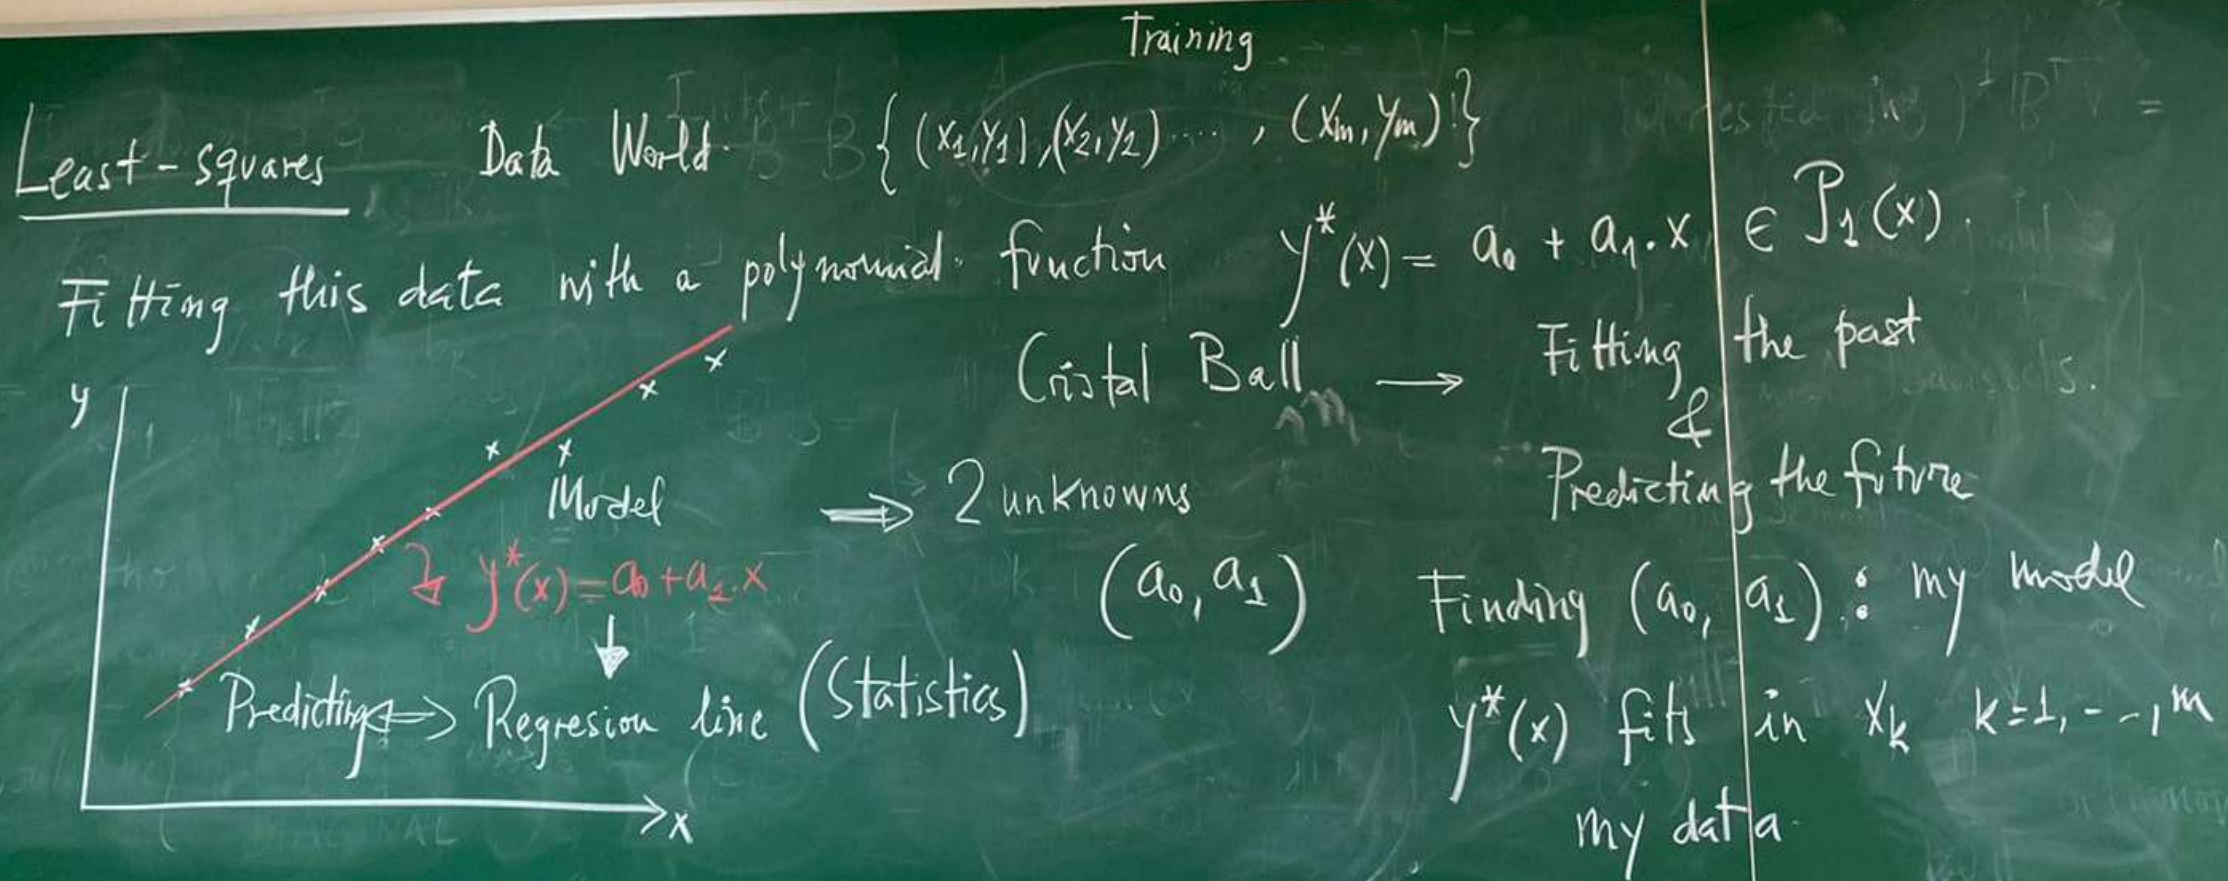 Training
Least-squares Data World. { (x₁,y₁), (x₂,y₂) ...., (xm, ym) }
Fitting this data with a polynomial function y*(x) = a₀ + a₁.x ∈ P₁(x).
Cristal Ball → Fitting the past
&
Predicting the future
y
Model ⇒ 2 unknowns
y*(x) = a₀ + a₁.x
(a₀, a₁)
Finding (a₀, a₁) : my model
Predicting ⇔ Regresion line (Statistics)
y*(x) fits in xk k=1, - - , m
my data
x